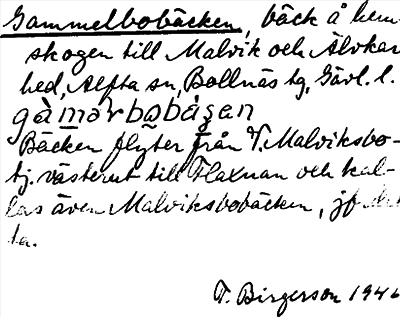 Gammelbobäcken, bäck å hem-
skogen till Malvik och Älvkar-
hed, Alfta sn, Bollnäs tg, Gävl. l.
gàmarbobágan
Bäcken flyter från V. Malviksbo-
tj. västerut till Flaxnan och kal-
las även Malviksbobäcken, jf det-
ta.
T. Birgerson 1946